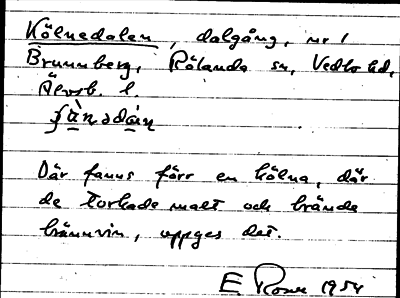 Kölnedalen, dalgång, nr 1
Brunnberg, Rölanda sn, Vedbo hd,
Älvsb. l.
Där fanns förr en kölna, där
de torkade malt och brände
brännvin, uppges det.
E 1954